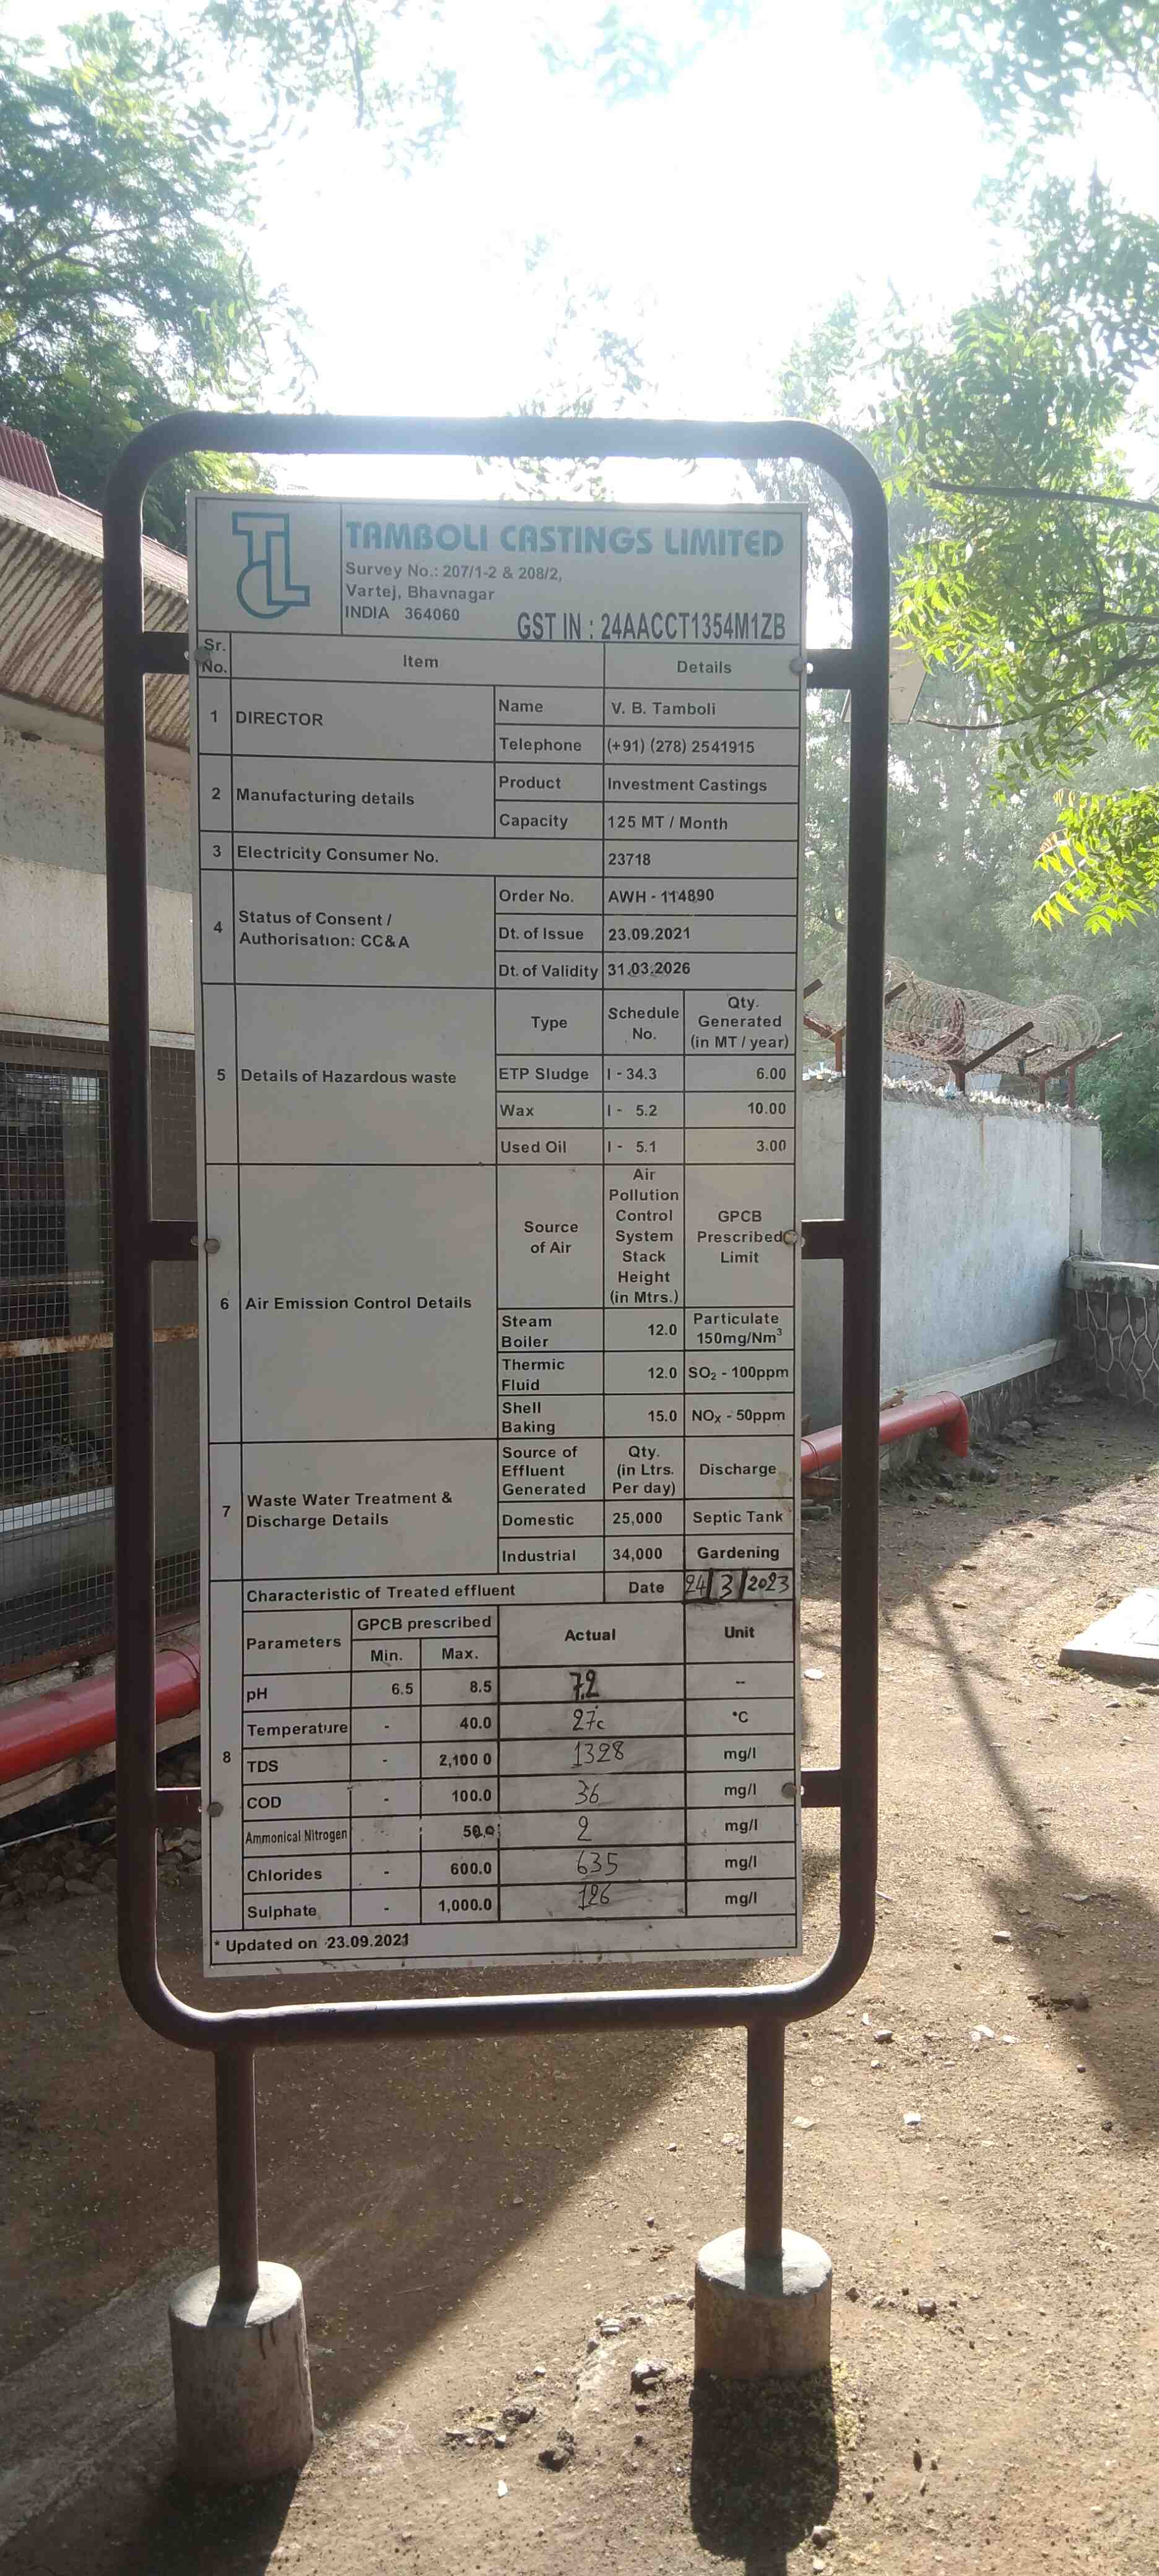 TCL
TAMBOLI CASTINGS LIMITED
Survey No.: 207/1-2 & 208/2,
Vartej, Bhavnagar
INDIA 364060
GST IN : 24AACCT1354M1ZB
Sr. No. Item Details
1 DIRECTOR Name V. B. Tamboli
Telephone (+91) (278) 2541915
2 Manufacturing details Product Investment Castings
Capacity 125 MT / Month
3 Electricity Consumer No. 23718
4 Status of Consent / Authorisation: CC&A Order No. AWH - 114890
Dt. of Issue 23.09.2021
Dt. of Validity 31.03.2026
5 Details of Hazardous waste Type Schedule No. Qty. Generated (in MT / year)
ETP Sludge I - 34.3 6.00
Wax I - 5.2 10.00
Used Oil I - 5.1 3.00
6 Air Emission Control Details Source of Air Air Pollution Control System Stack Height (in Mtrs.) GPCB Prescribed Limit
Steam Boiler 12.0 Particulate 150mg/Nm³
Thermic Fluid 12.0 SO₂ - 100ppm
Shell Baking 15.0 NOx - 50ppm
7 Waste Water Treatment & Discharge Details Source of Effluent Generated Qty. (in Ltrs. Per day) Discharge
Domestic 25,000 Septic Tank
Industrial 34,000 Gardening
8 Characteristic of Treated effluent Date 24/3/2023
Parameters GPCB prescribed Min. Max. Actual Unit
pH 6.5 8.5 7.2 --
Temperature - 40.0 27°c °C
TDS - 2,100 0 1328 mg/l
COD - 100.0 36 mg/l
Ammonical Nitrogen 50.0 2 mg/l
Chlorides - 600.0 635 mg/l
Sulphate - 1,000.0 126 mg/l
* Updated on 23.09.2021